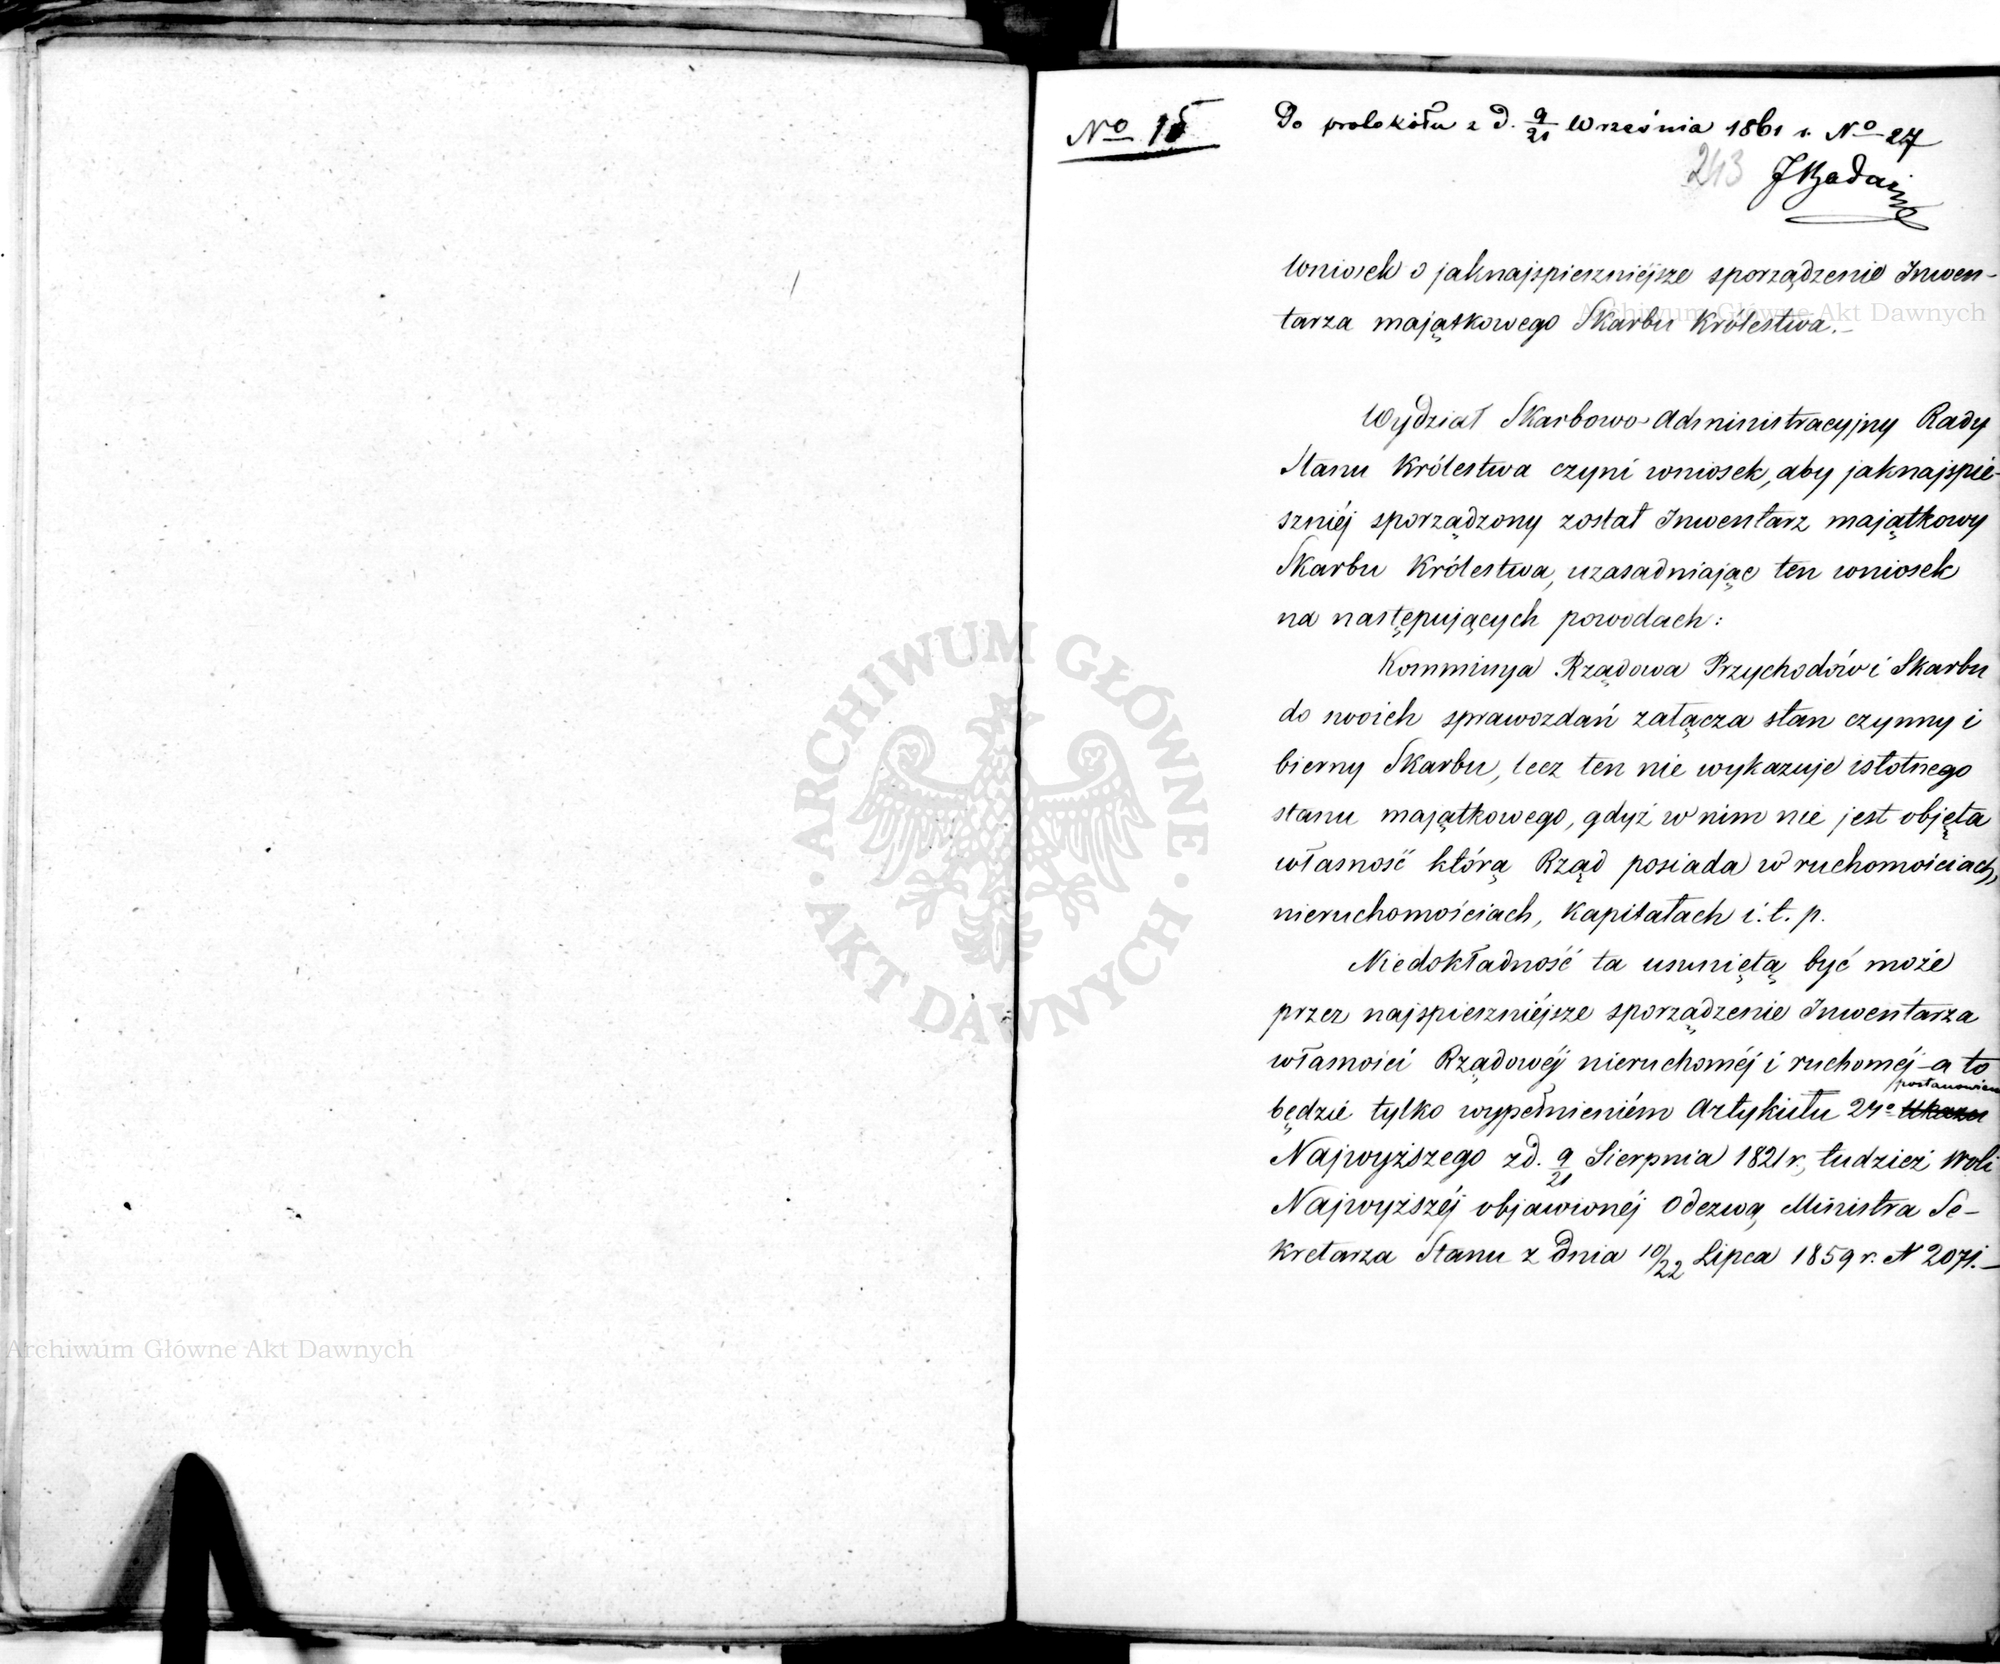 No 15
Do protokółu z d. 9/21 Września 1861 r. No 27
243
Wniosek o jaknajspieszniéjsze sporządzenie Inwen-
tarza majątkowego Skarbu Królestwa.-
Wydział Skarbowo-Administracyjny Rady
Stanu Królestwa czyni wniosek, aby jaknajspie-
szniéj sporządzony został Inwentarz majątkowy
Skarbu Królestwa, uzasadniając ten wniosek
na następujących powodach:
Kommissya Rządowa Przychodów i Skarbu
do swoich sprawozdań załącza stan czynny i
bierny Skarbu, lecz ten nie wykazuje istotnego
stanu majątkowego, gdyż w nim nie jest objęta
własność którą Rząd posiada w ruchomościach,
nieruchomościach, Kapitałach i.t.p.
Niedokładność ta usuniętą być może
przez najspieszniéjsze sporządzenie Inwentarza
własności Rządowéj nieruchoméj i ruchoméj - a to
postanowienia
będzie tylko wypełnieniém Artykułu 24o Ukazu
Najwyższego z d. 9/21 Sierpnia 1821 r., tudzież Woli
Najwyższéj objawionéj Odezwą Ministra Se-
kretarza Stanu z dnia 10/22 Lipca 1859 r. N 2071.-
Archiwum Główne Akt Dawnych
Archiwum Główne Akt Dawnych
ARCHIWUM GŁÓWNE · AKT DAWNYCH ·